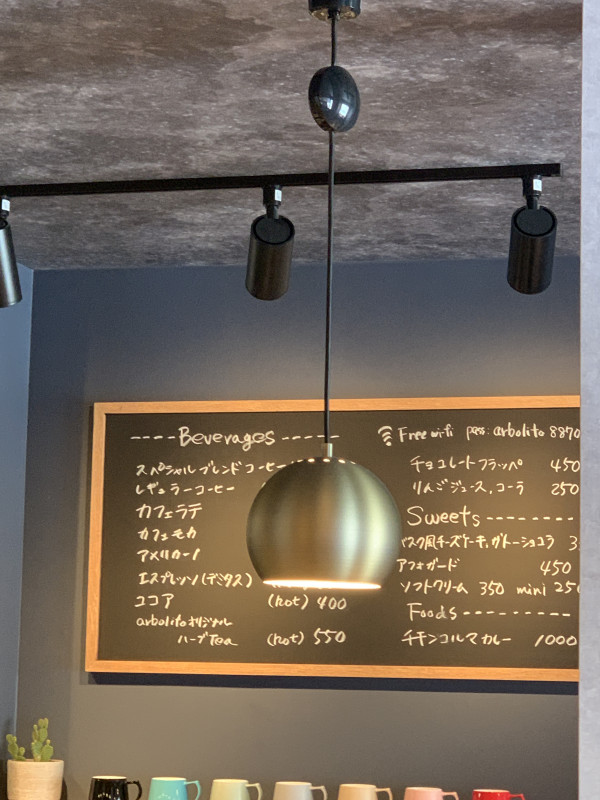 ----Beverages-----
スペシャルブレンドコーヒー
レギュラーコーヒー
カフェラテ
カフェモカ
アメリカーノ
エスプレッソ(デミタス)
ココア (hot) 400
arbolitoオリジナル
ハーブTea (hot) 550
Free wi-fi pass: arbolito 8870
チョコレートフラッペ 450
りんごジュース、コーラ 250
Sweets--------
バスク風チーズケーキ、ガトーショコラ
アフォガード 450
ソフトクリーム 350 mini 250
Foods---------
チキンコルマカレー 1000